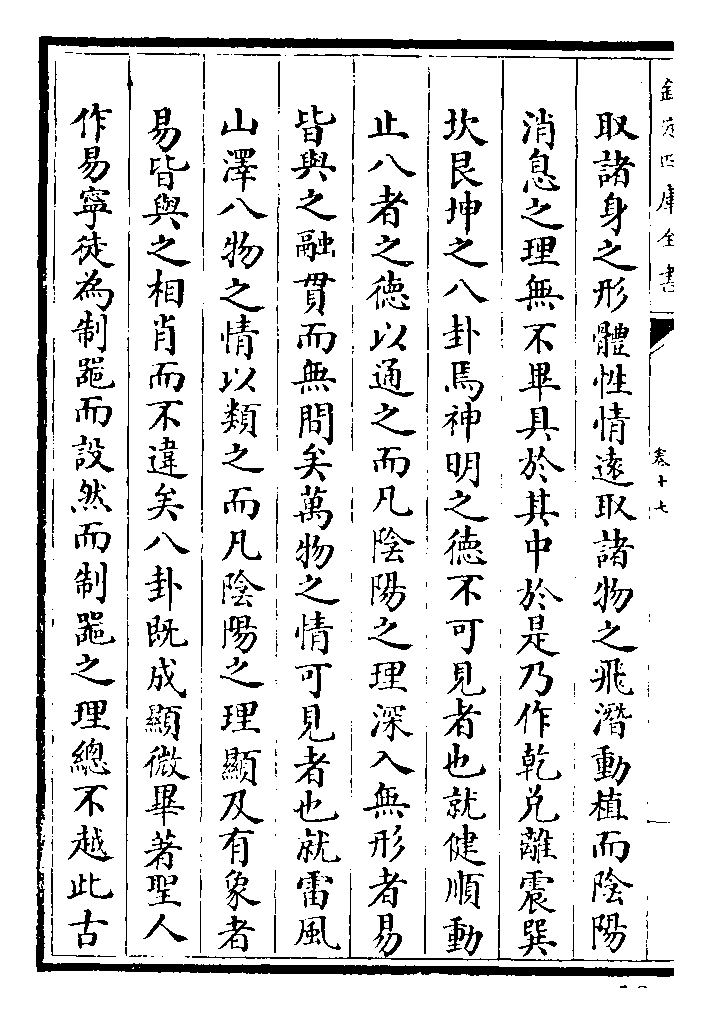 欽定四庫全書
卷十七
取諸身之形體性情遠取諸物之飛潛動植而陰陽
消息之理無不畢具於其中於是乃作乾兌離震巽
坎艮坤之八卦焉神明之德不可見者也就健順動
止八者之德以通之而凡陰陽之理深入無形者易
皆與之融貫而無間矣萬物之情可見者也就雷風
山澤八物之情以類之而凡陰陽之理顯及有象者
易皆與之相肖而不違矣八卦既成顯微畢著聖人
作易寧徒為制噐而設然而制噐之理總不越此古